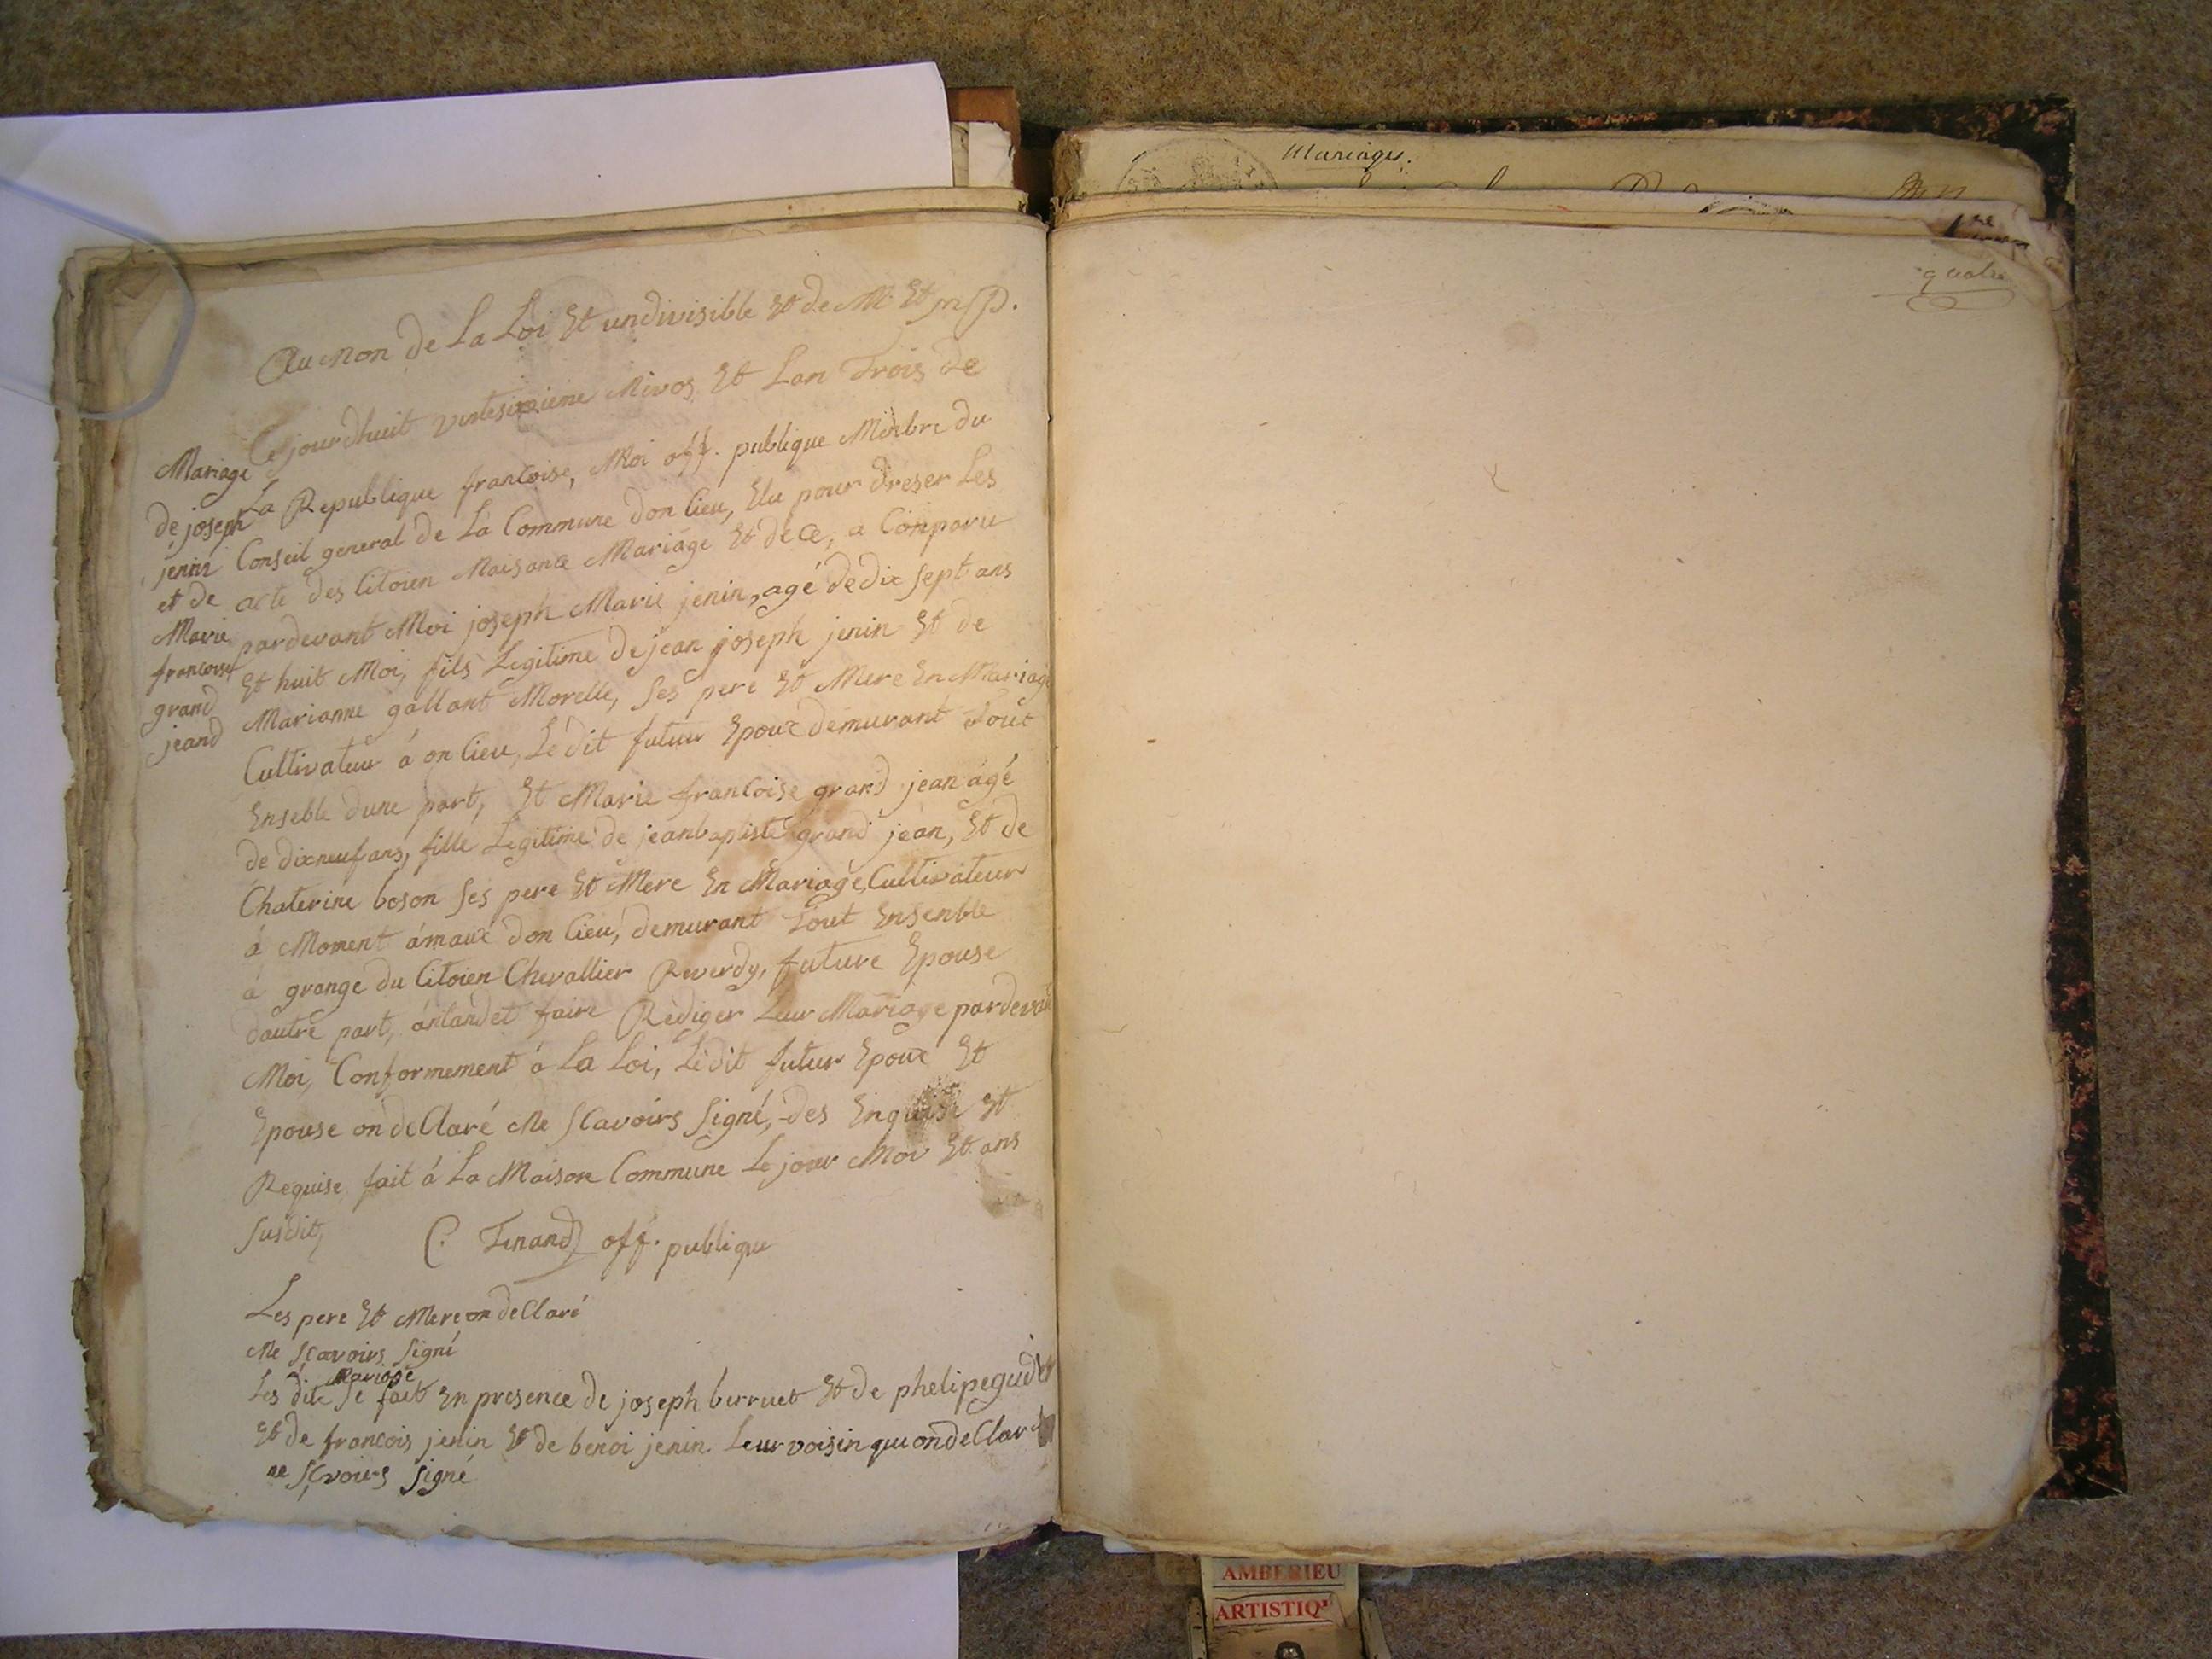 Mariages.
quatre
Au Non de La Loi Et undivisible Et de M. Et
Cejourdhuit vintesixieme Nivos Et Lan Trois de
La Republique francoise, Moi off. publique Menbre du
Conseil general de La Commune Don lieu, Elu pour dreser Les
acte des Citoien Naisance Mariage Et déce, a Conparu
pardevant Moi joseph Marie jenin, agé de dix sept ans
Et huit Moi, fils Legitime de jean joseph jenin Et de
Marianne gallant Morelle, ses pere Et Mere En Mariage
Cultivateur á on lieu, Ledit futur Epoux demurant Tout
Enseble dune part, Et Marie francoise grand jean agé
de dixneuf ans, fille Legitime de jeanbaptiste grand jean, Et de
Chaterine boson ses pere Et Mere En Mariage, Cultivateur
á Moment ámaux don lieu, demurant Tout Ensenble
á grange du Citoien Chevallier Reverdy, future Epouse
dautre part, ántandet faire Rediger Leur Mariage pardevant
Moi, Conformement á La Loi, Ledit futur Epoux Et
Epouse on deClaré Ne sCavoirs signé, des Enquise Et
Requise fait á La Maison Commune Le jour Moi Et ans
susdit,
C. Tenand off. publique
Mariage
de joseph
jenin
et de
Marie
francoise
grand
jeand
Les pere Et Mere on deClaré
Ne sCavoirs signé
Mariage
Les dite se fait En presence de joseph berruet Et de phelipe
Et de francois jenin Et de benoi jenin Leur voisin qui on deClaré
ne sCvoirs signé
AMBERIEU
ARTISTIQ